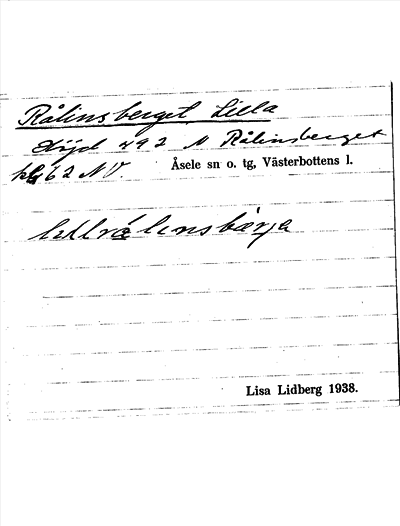 Rålinsberget, Lilla
Höjd 492 N Rålinsberget
kbl 62 NV. Åsele sn o. tg, Västerbottens l.
lillrålinsbärja
Lisa Lidberg 1938.